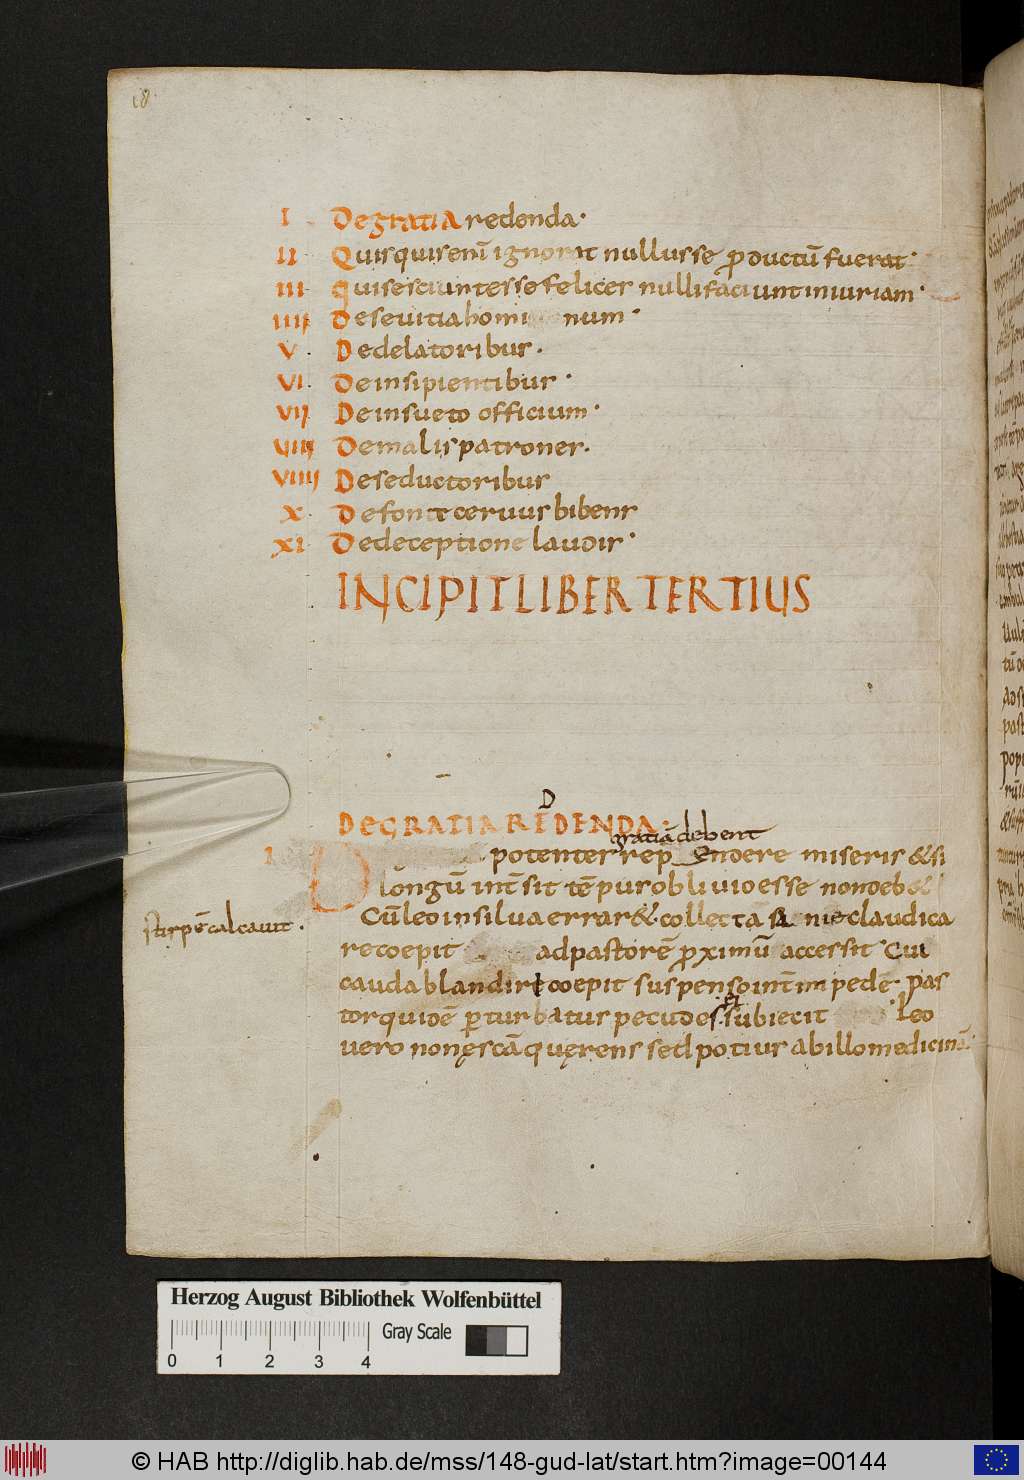 I Degratia redenda·
II Quisquisenī ignorat nullusse ꝓductū fuerat·
III quisesciuntessefelices nullifaciuntiniuriam·
IIII Desevitiahomi num·
V· Dedelatoribus·
VI· Deinsipientibus·
VII Deinsueto officium·
VIII Demalispatrones·
VIIII Deseductoribus
X· Defonte cervus bibens
XI Dedeceptione lavois·
INCIPIT LIBER TERTIUS
D
DEGRATIA REDENDA:
gratiā debent
I potentes rep endere miseris &si
longū int̄ sit tēpus oblivio esse non deb&
stirpē calcavit·
Cū leo in silva errar&·collecta nie claudica
re coepit ad pastorē ꝓximū accessit Cui
cauda blandire coepit suspenso int̄im pede· pas
tor quidē ꝑturbatus pecudes·subiecit ·Leo
vero non ęscā quęrens sed potius ab illo medicinā
Herzog August Bibliothek Wolfenbüttel
Gray Scale
0 1 2 3 4
© HAB http://diglib.hab.de/mss/148-gud-lat/start.htm?image=00144